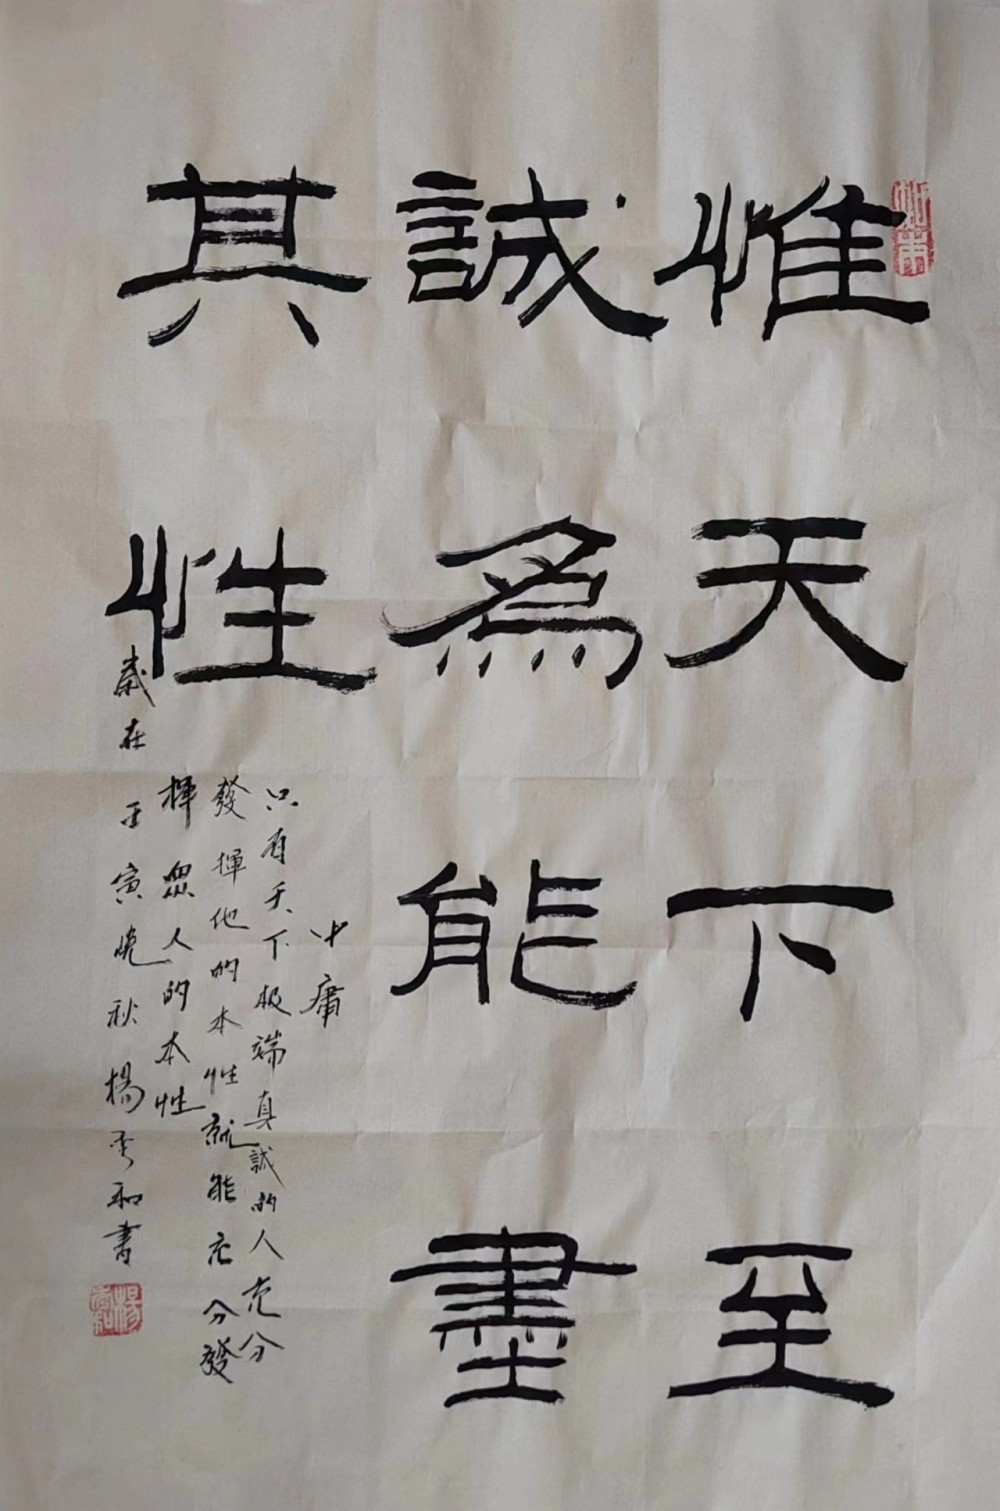 惟天下至
誠為能盡
其性
中庸
只有天下极端真誠的人充分
發揮他的本性就能充分發
揮眾人的本性
歲在壬寅晚秋楊和書